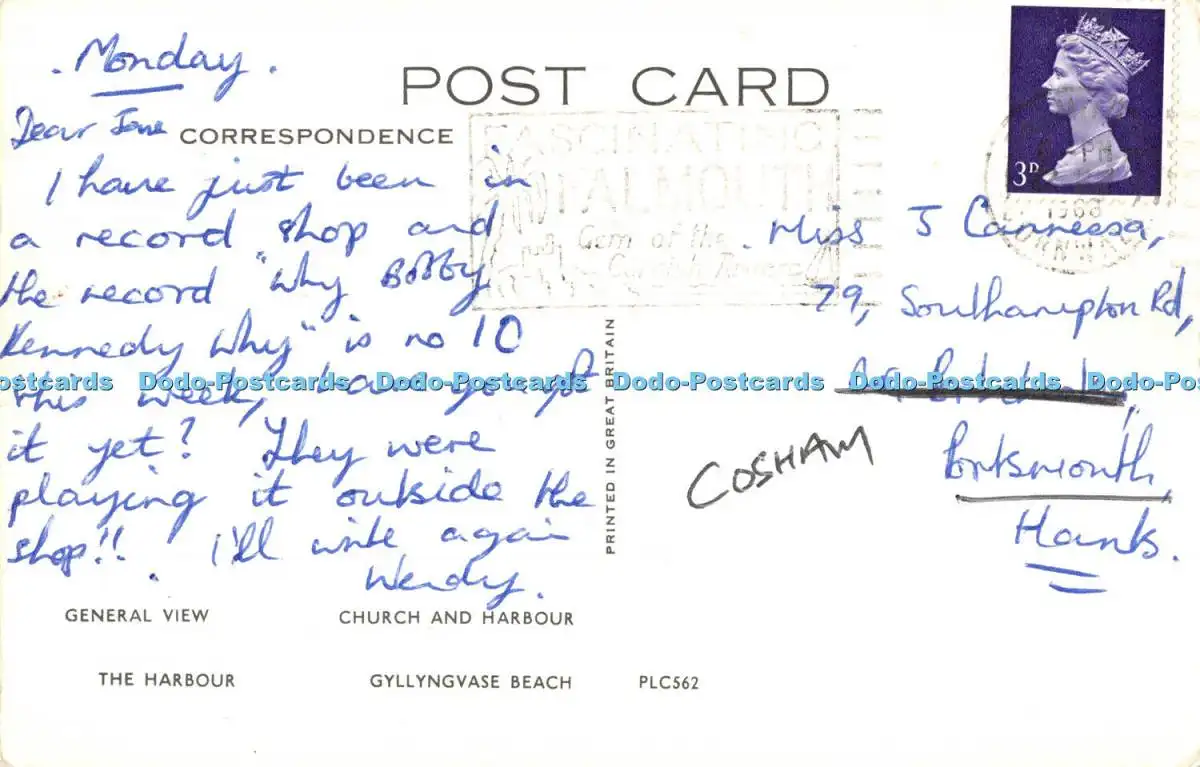 . Monday .
POST CARD
Dear Jane
CORRESPONDENCE
I have just been in
a record shop and
the record "Why Bobby
Kennedy Why" is no 10
this week, have you got
it yet? They were
playing it outside the
shop!! I'll write again
Wendy.
FASCINATING
FALMOUTH
Gem of the
Cornish Riviera
3D
PM
1968
CORNWALL
Miss J Canneesa,
79, Southampton Rd,
COSHAM
Portsmouth,
Hants.
PRINTED IN GREAT BRITAIN
Dodo-Postcards Dodo-Postcards Dodo-Postcards Dodo-Postcards Dodo-Postcards Dodo-Postcards
GENERAL VIEW CHURCH AND HARBOUR
THE HARBOUR GYLLYNGVASE BEACH PLC562